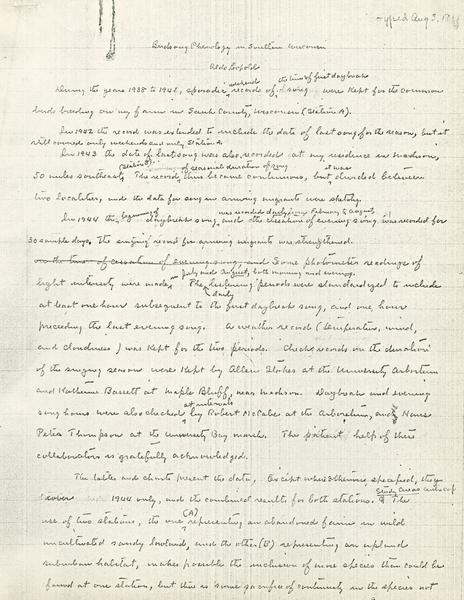 typed Aug 3,
Birdsong Phenology in Southern Wisconsin
Aldo Leopold
weekends the time of first daybreak
During the years 1938 to 1941, sporadic records of song were kept for the common
birds breeding on my farm in Sauk County, Wisconsin (Station A).
In 1942 the record was extended to include the date of last song for the season, but it
still covered only weekends and only Station A.
In 1943 the date of last song was also recorded at my residence in Madison,
(Station B) of seasonal duration of song it was
50 miles southeast. The record thus became continuous, but divided between
two localities, and the date for song in arriving migrants were sketchy.
beginning of was recorded daily from February to August
In 1944 the daybreak song and the cessation of evening song was recorded for
30 sample days, the singing record for arriving migrants was strengthened.
on the time of cessation of evening song, and some photometer readings of
July and August, both morning and evening.
light intensity were made. The listening periods were standardized to include
daily
at least one hour subsequent to the first daybreak song, and one hour
preceding the last evening song. A weather record (temperature, wind,
and cloudiness) was kept for the two periods. Check records on the duration
of the singing season were kept by Allen Stokes at the University Arboretum
and Katherine Barrett at Maple Bluff, near Madison. Daybreak and evening
at intervals
song hours were also checked by Robert McCabe at the Arboretum, and Hans
Peter Thompson at the University Bay marsh. The patient help of these
collaborators is gratefully acknowledged.
The table and charts present the data. Except where otherwise specified, they
cover 1944 only, and the combined results for both stations. The
Study areas
(A)
use of two stations, the one representing an abandoned farm in wild
uncultivated sandy lowland, and the other (B) representing an upland
suburban habitat, makes possible the inclusion of more species than could be
found at one station, but this is some sacrifice of continuity in the species not